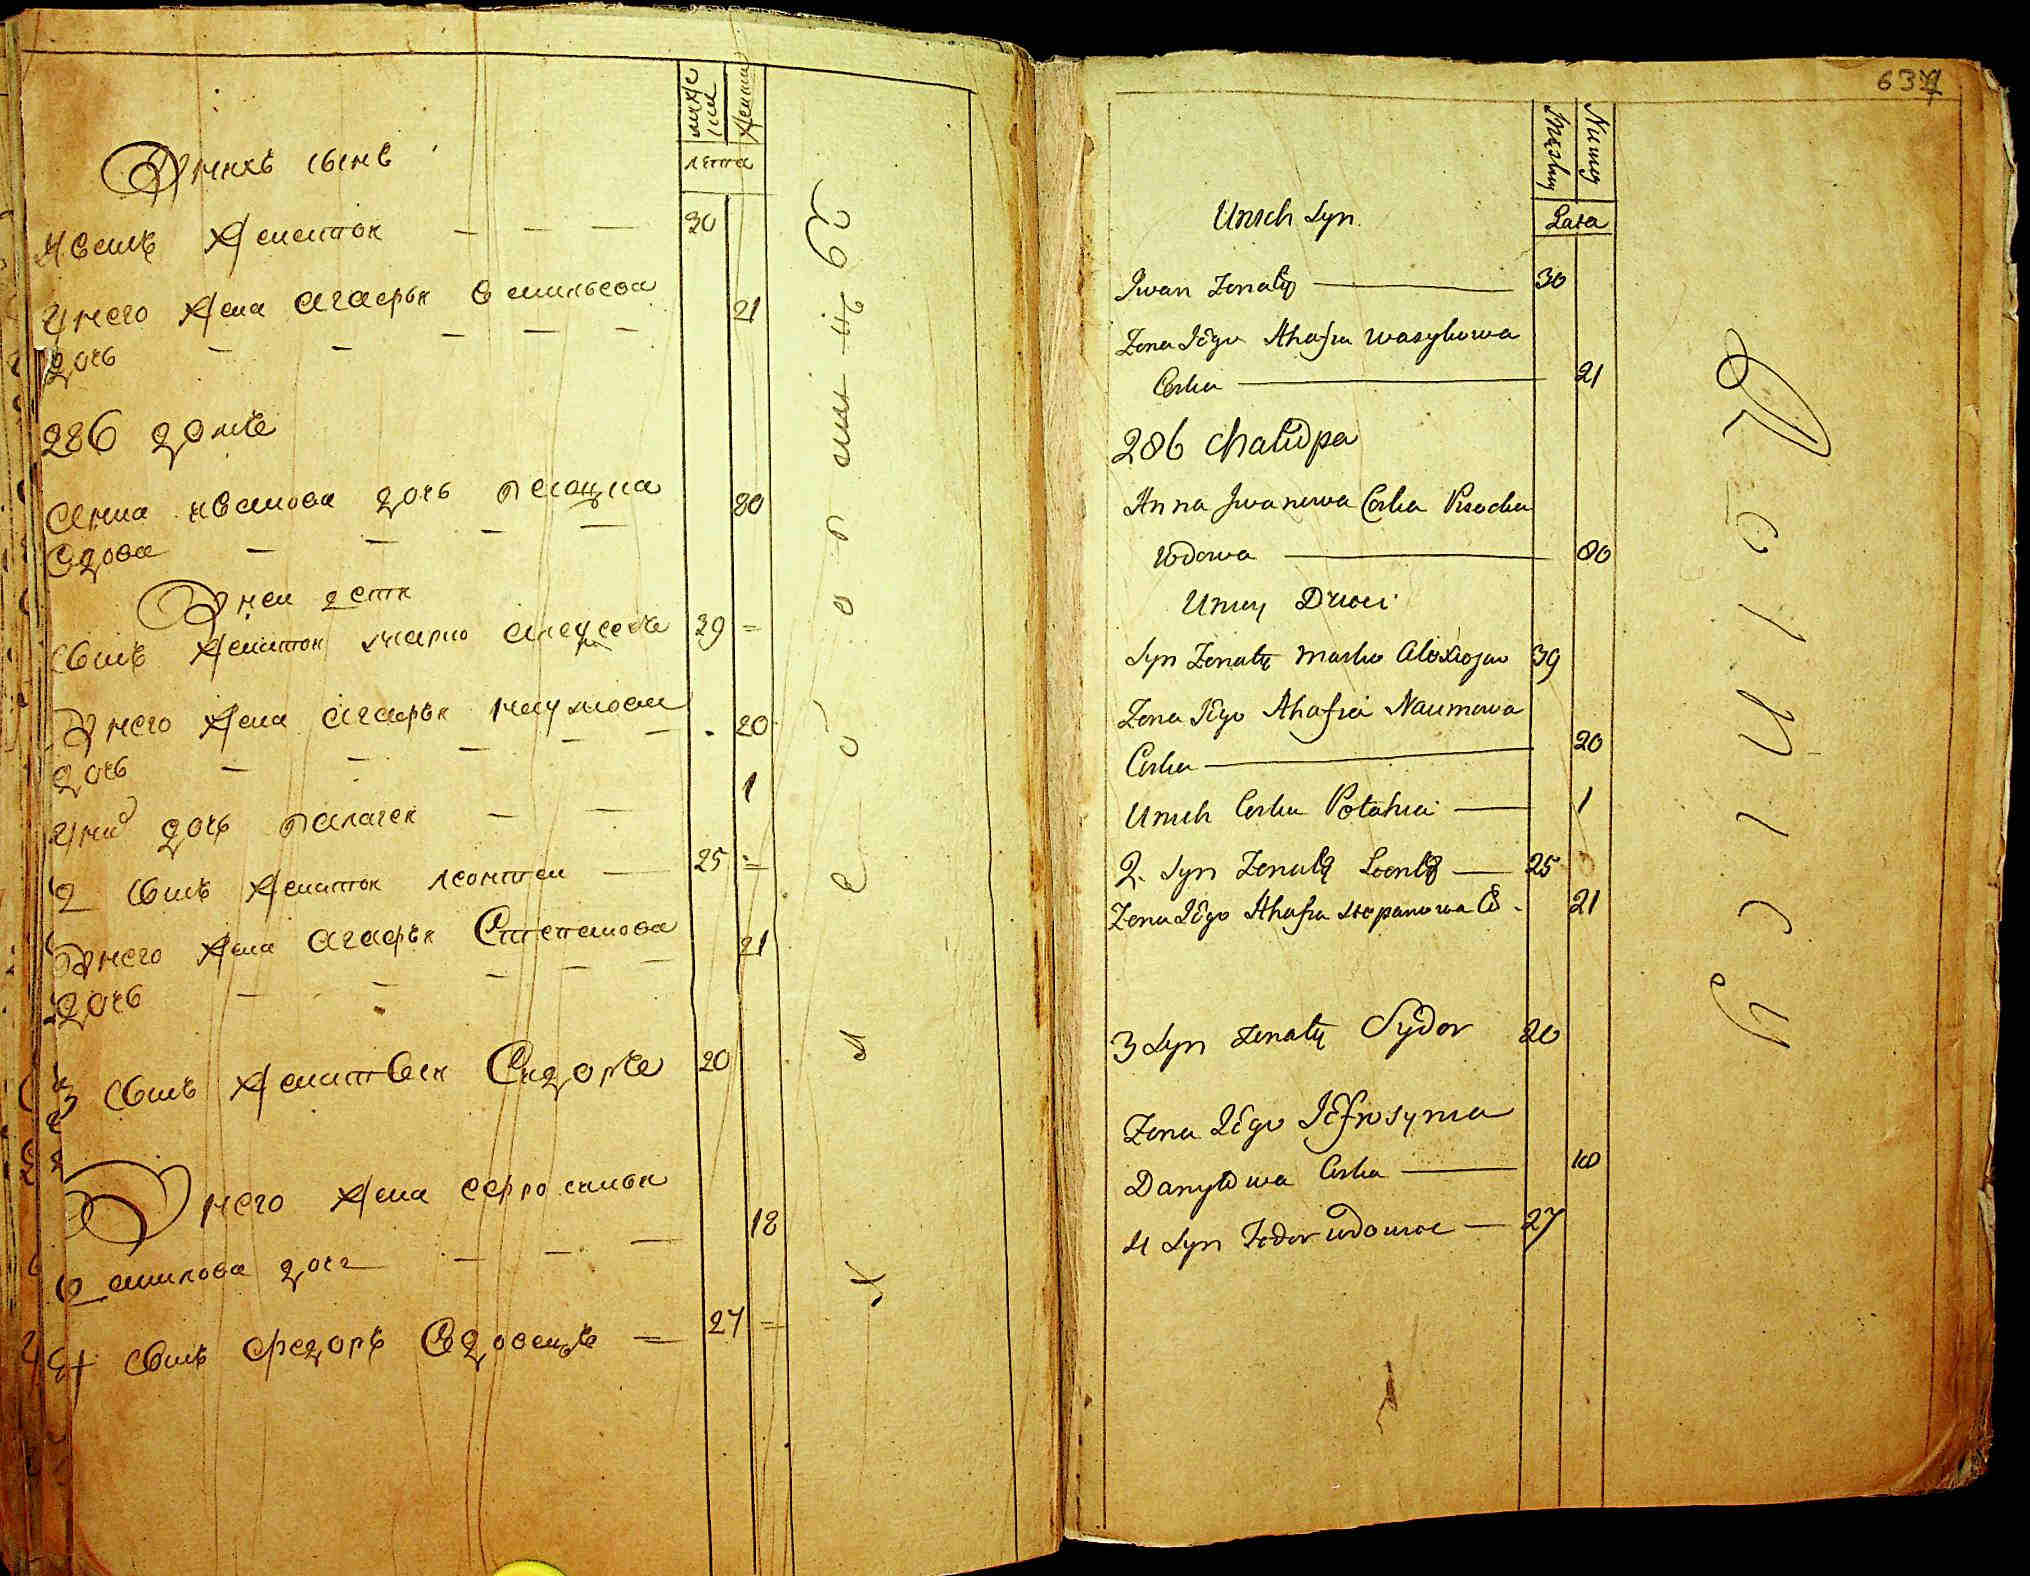 мужс
ска
женска
лета
Унихъ сынъ
Иванъ женатои — — — 30
Унего жена агафья василева
дочь — — — — — 21
286 домъ
Анна иванова дочь
вдова — — — — 80
Уней дети
сынъ женатои марко алексеевъ 39 =
Унего жена агафья наумова
дочь — — — — — 20
Уних дочь палагея — — 1
2 сынъ женатои леонтеи — 25 =
Унего жена агафья Степанова
дочь — — — — — 21
3 сынъ женатвеи Сидоръ 20
Унего жена ефросинья
данилова дочь — — — 18
4 сынъ Федоръ Вдовецъ = 27 =
637
Męzkey
Niwey
Lata
Unich Syn
Iwan Zonaty — 30
Zona Iego Ahafia Wasylowa
Corka — 21
286 Chalupa
Anna Iwanowa Corka
Wdowa — 80
Uniey Dzieci
Syn Zonaty Marko Alexiejow 39
Zona Iego Ahafia Naumowa
Corka — 20
Unich Corka Potahia — 1
2. Syn Zonaty Leonty — 25
Zona Iego Ahafia Stepanowa C. 21
3 Syn Zonaty Sydor 20
Zona Iego Iefrosynia
Danylowa Corka — 18
4 Syn Fedor Wdowiec — 27
R o l n i c y